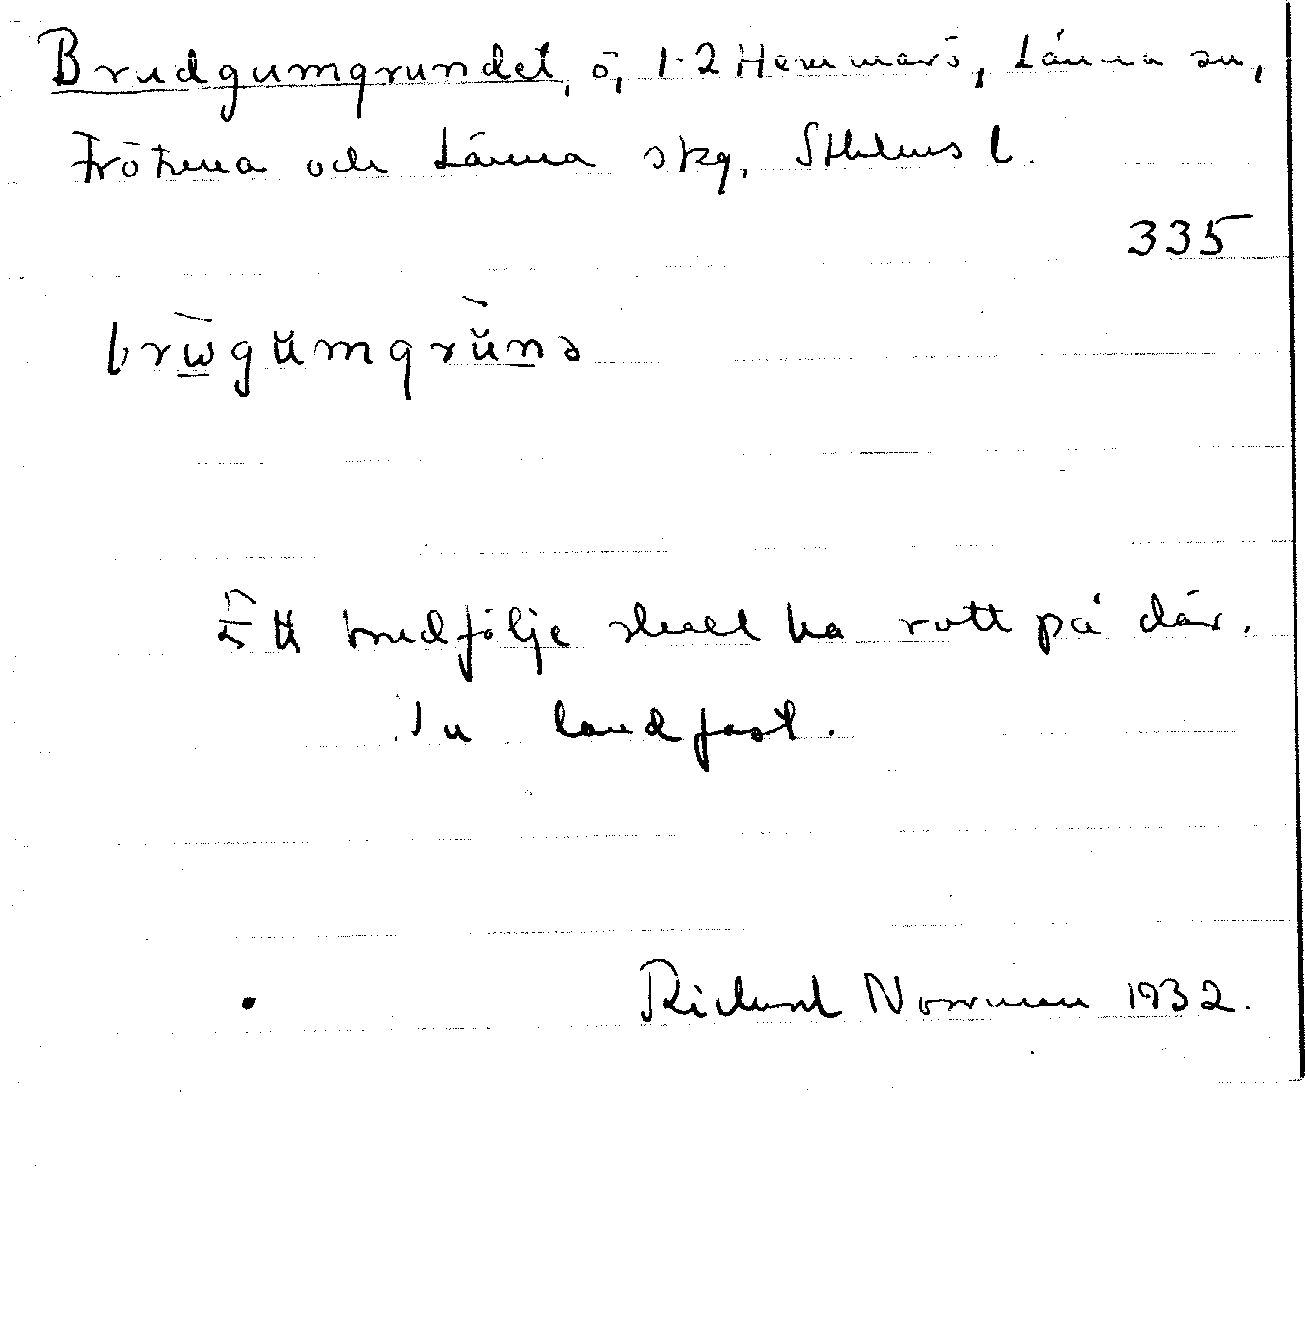 Brudgumgrundet, ö, 1-2 Hemmarö, Länna sn,
Frötuna och Länna skg, Sthlms l.
335
brωgŭmgrŭnə
Ett brudfölje skall ha rott på där.
Nu landfast.
Richard Norrman 1932.